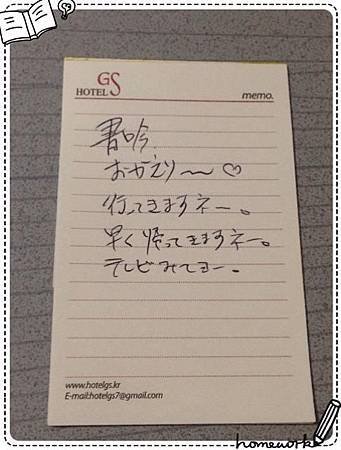 GS
HOTEL
memo.
書吟
おかえり〜♡
行ってきますネー。
早く帰ってきますネー。
テレビみてヨー。
www.hotelgs.kr
E-mail:hotelgs7@gmail.com
homework